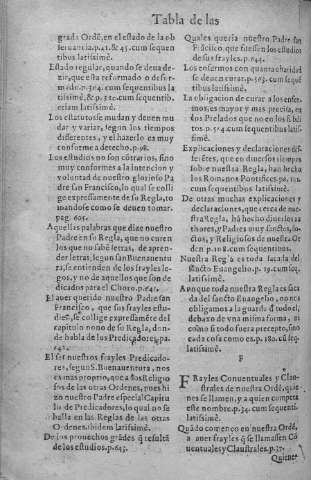 Tabla de las
grada Ordē, en el estado de la obseruancia. p.41. & 45. cum sequentibus latissimè.
Estado regular, quando se deua dezir, que esta reformado o deformado. n.304. cum sequentibus latissimè, & p.312. cum sequentib. etiam latissimè.
Los estatutos se mudan y deuen mudar y variar, segun los tiempos differentes, y el hazerlo es muy conforme a derecho. p.98.
Los estudios no son cōtrarios, sino muy conformes a la intencion y voluntad de nuestro glorioso Padre san Francisco, lo qual se colige expressamente de su Regla, tomandose como se deuen tomar. pag. 605.
Aquellas palabras que dize nuestro Padre en su Regla, que no curen los que no sabē letras, de aprender letras, segun san Buenauentura, se entienden de los frayles legos, y no de aquellos que son dedicados para el Choro. p.641.
El auer querido nuestro Padre san Francisco, que sus frayles estudiē, se collige expressamēte del capitulo nono de su Regla, donde habla de los Predicadores. pa. 642.
El ser nuestros frayles Predicadores, segun S. Buenauentura, nos es mas proprio, que a los Religiosos de las otras Ordenes, pues hizo nuestro Padre especial Capitulo de Predicadores, lo qual no se halla en las Reglas de las otras Ordenes. ibidem latissimè.
De los prouechos grādes q̄ resultā de los estudios. p.643.
Quales queria nuestro Padre san Frācisco, que fuessen los estudios de sus frayles. p.644.
Los enfermos con quanta charidad se deuen curar. p.503. cum sequētibus latissimè.
La obligacion de curar a los enfermos, es mayor y mas precisa, en los Prelados que no en los subditos. p.504. cum sequentibus latissimè.
Explicaciones y declaraciones differētes, que en diuersos tiempos sobre nuestra Regla, han hecho los Romanos Pontifices. pa. 102. cum sequentibus latissimè.
De otras muchas explicaciones y declaraciones, que cerca de nuestra Regla, hā hecho diuersos authores, y Padres muy sanctos, doctos, y Religiosos de nuestra Orden. p.108. cum sequentibus.
Nuestra Regla es toda sacada del sancto Euangelio. p.19. cum sequentib. latissimè.
Aunque toda nuestra Regla es sacada del sancto Euangelio, no nos obligamos a la guarda d̄l todo el, debaxo de vna misma forma, ni como si todo fuera precepto, sino cada cosa como es. p.180. cū seq. latissimè.
F
FRayles Conuentuales y Claustrales de nuestra Ordē, quienes se llamen, y a quien compete este nombre. p.34. cum sequentibus latissimè.
Quādo començo en nuestra Ordē, a auer frayles q̄ se llamassen Cōuentuales y Claustrales. p.37.
Quienes